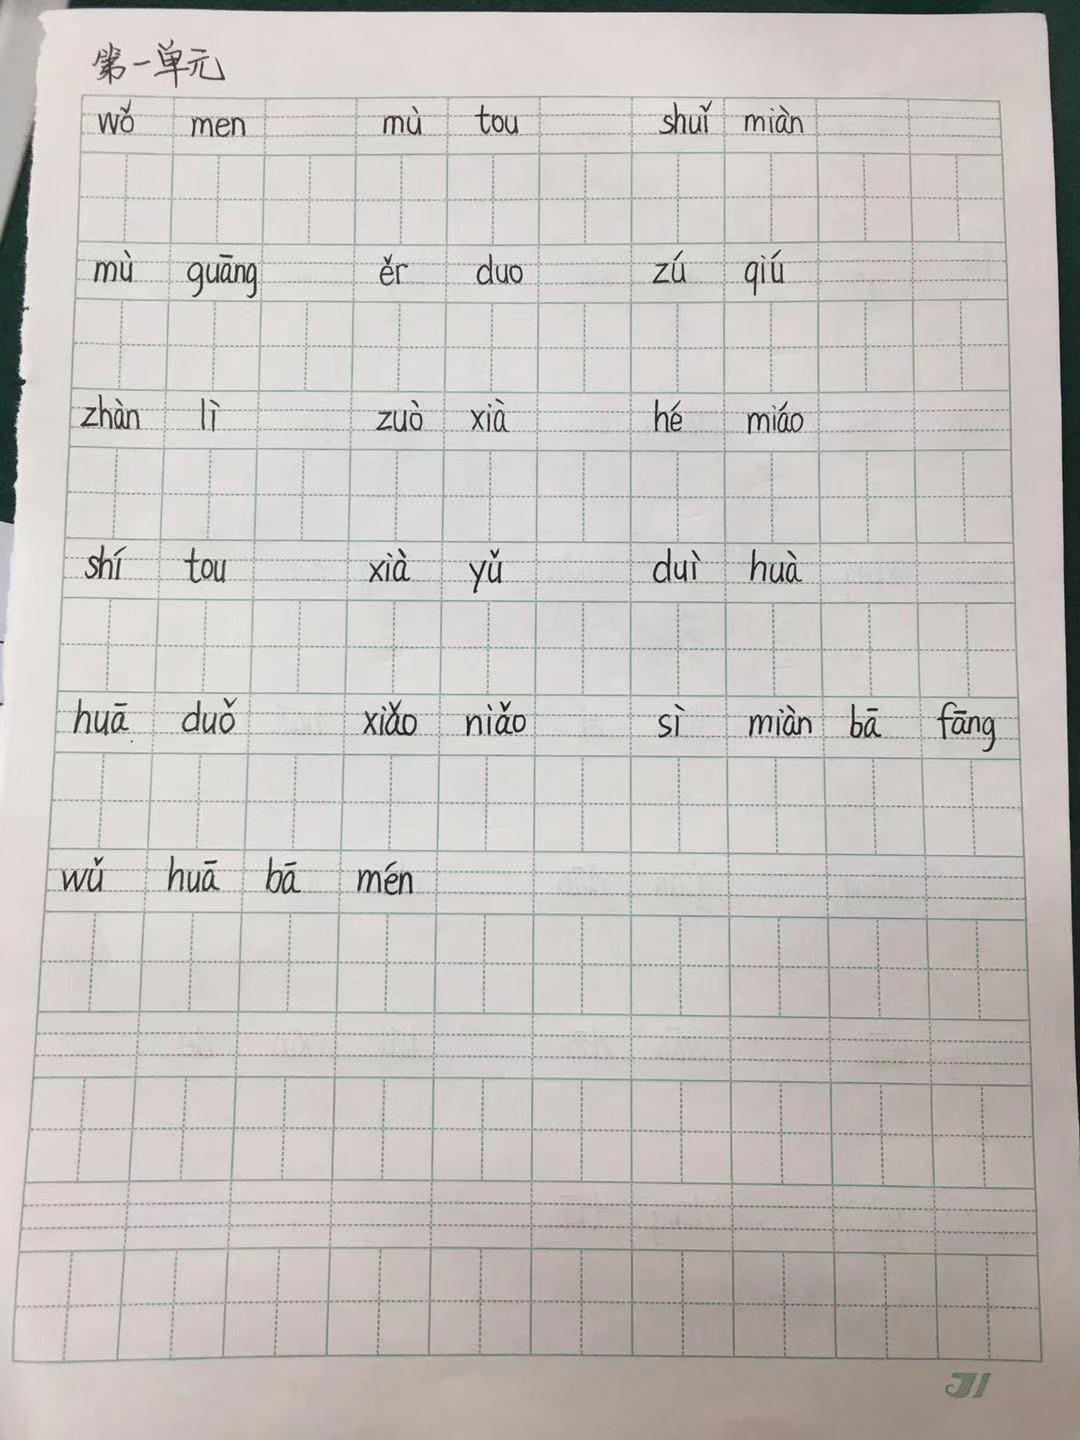 第一单元
wǒ men mù tou shuǐ miàn
mù guāng ěr duo zú qiú
zhàn lì zuò xià hé miáo
shí tou xià yǔ duì huà
huā duǒ xiǎo niǎo sì miàn bā fāng
wǔ huā bā mén